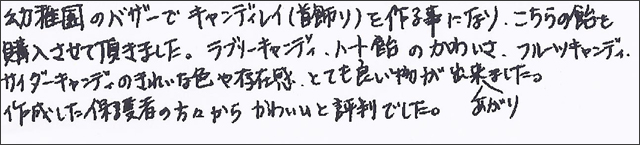 幼稚園のバザーでキャンディレイ(首飾り)を作る事になり、こちらの飴も
購入させて頂きました。ラブリーキャンディ、ハート飴のかわいさ、フルーツキャンディ、
サイダーキャンディのきれいな色や存在感、とても良い物が出来ました。
あがり
作成した保護者の方々からかわいいと評判でした。